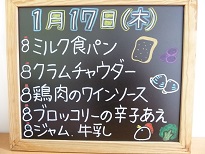 1月17日(木)
8ミルク食パン
8クラムチャウダー
8鶏肉のワインソース
8ブロッコリーの辛子あえ
8ジャム、牛乳